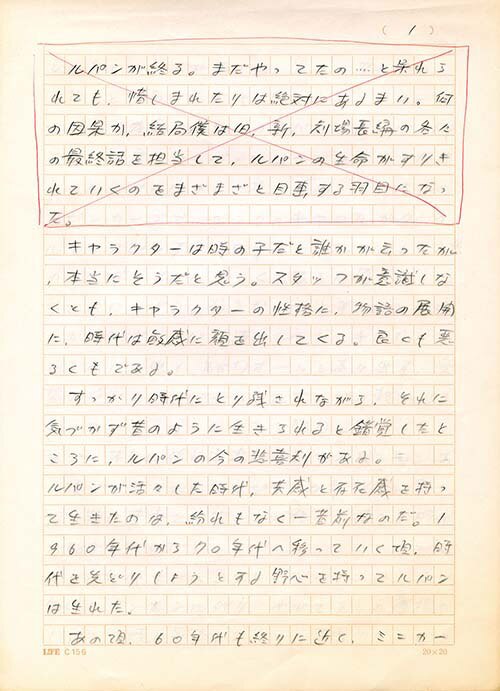 ( 1 )
ルパンが終る。まだやってたの……と呆れら
れても、惜しまれたりは絶対にあるまい。何
の因果か、結局僕は旧、新、劇場長編の各々
の最終話を担当して、ルパンの生命がすりき
れていくのをまざまざと目撃する羽目になっ
た。
キャラクターは時の子だと誰かが云ったが
、本当にそうだと思う。スタッフが意識しな
くとも、キャラクターの性格に、物語の展開
に、時代は敏感に顔を出してくる。良くも悪
るくもである。
すっかり時代にとり残されながら、それに
気づかず昔のように生きられると錯覚したと
ころに、ルパンの今の悲喜劇がある。
ルパンが活々した時代、実感と存在感を持っ
て生きたのは、紛れもなく一昔前なのだ。1
960年代から70年代へ移っていく頃、時
代を先どりしようとする野心を持ってルパン
は生れた。
あの頃、60年代も終りに近く、ミニカー
LIFE C156
20×20